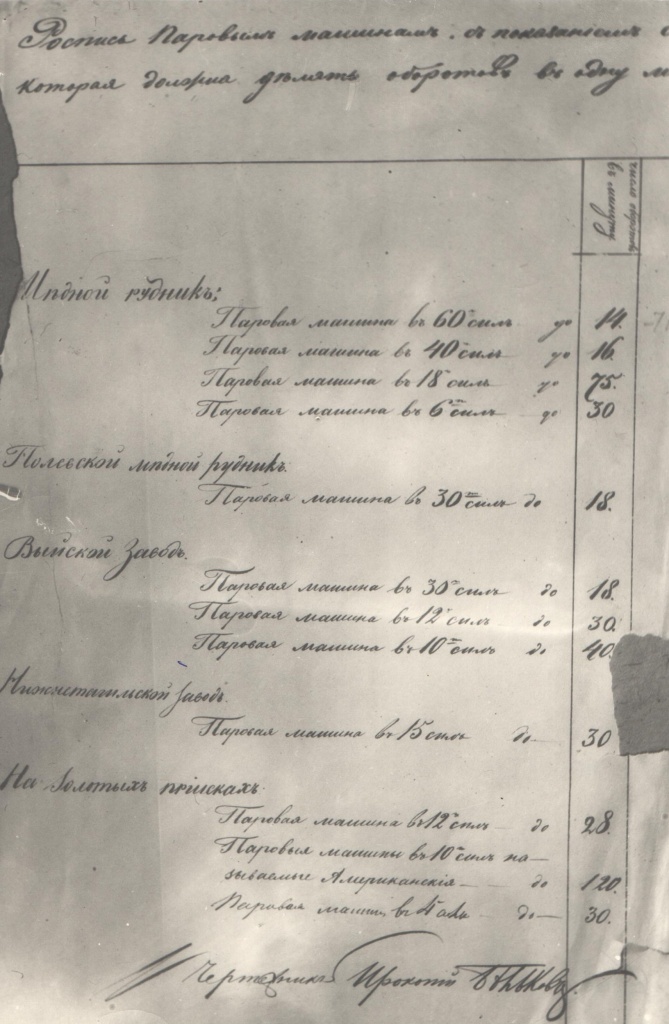 Роспись Паровымъ машинамъ съ показанiемъ
которая должна дѣлать оборотовъ въ одну
число оборотовъ
въ минуту
Мѣдной рудникъ:
Паровая машина въ 60 силъ до 14.
Паровая машина въ 40 силъ до 16.
Паровая машина въ 18 силъ до 75.
Паровая машина въ 6ть силъ до 30
Полевской мѣдной рудникъ.
Паровая машина въ 30ть силъ до 18.
Выйской Заводъ.
Паровая машина въ 30ть силъ до 18.
Паровая машина въ 12ть силъ до 30.
Паровая машина въ 10ть силъ до 40.
Нижнетагилской Заводъ.
Паровая машина въ 15 силъ до 30
На Золотыхъ прiискахъ
Паровая машина въ 12ть силъ до 28.
Паровыя машины въ 10ть силъ на-
зываемые Американскiя — до 120.
Паровая машин въ 4 до 30.
Чертежникъ Прокопiй Бѣльковъ.